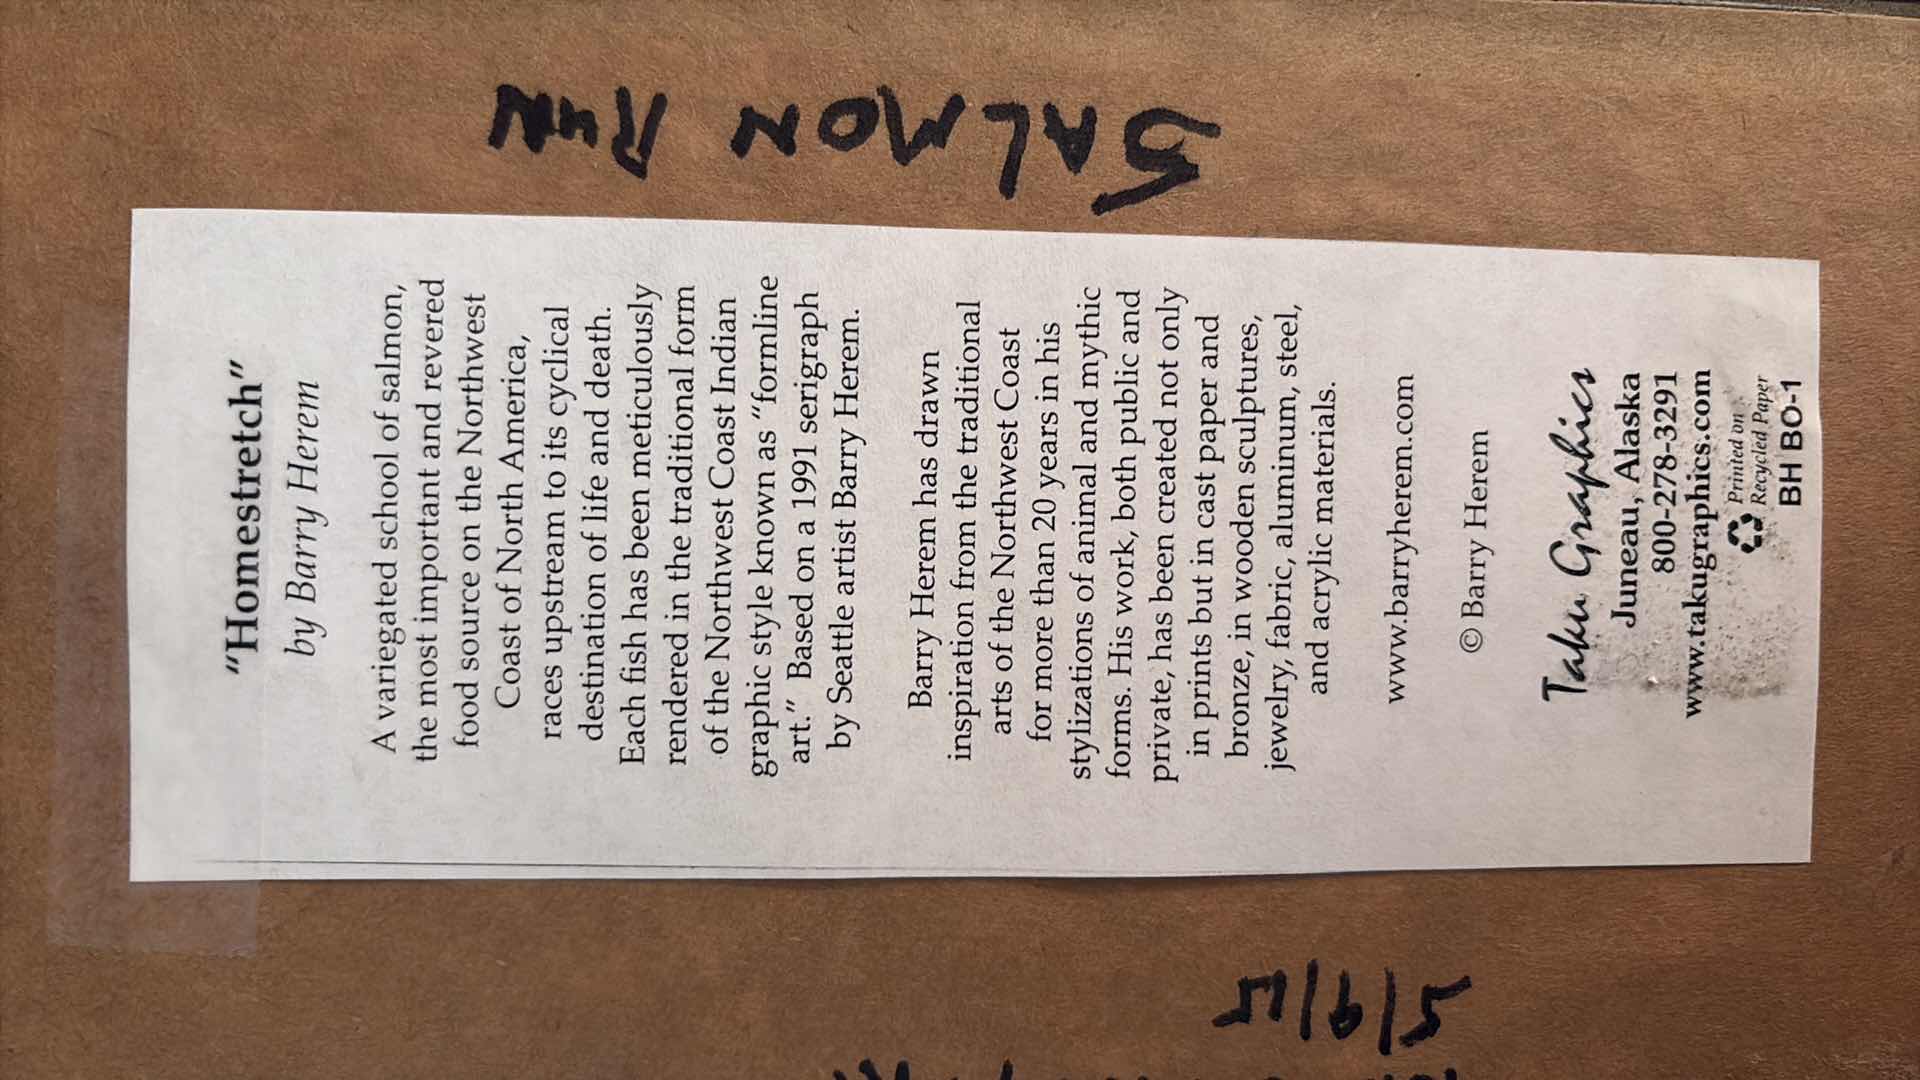 "Homestretch"
by Barry Herem
A variegated school of salmon,
the most important and revered
food source on the Northwest
Coast of North America,
races upstream to its cyclical
destination of life and death.
Each fish has been meticulously
rendered in the traditional form
of the Northwest Coast Indian
graphic style known as "formline
art." Based on a 1991 serigraph
by Seattle artist Barry Herem.
Barry Herem has drawn
inspiration from the traditional
arts of the Northwest Coast
for more than 20 years in his
stylizations of animal and mythic
forms. His work, both public and
private, has been created not only
in prints but in cast paper and
bronze, in wooden sculptures,
jewelry, fabric, aluminum, steel,
and acrylic materials.
www.barryherem.com
© Barry Herem
Taku Graphics
Juneau, Alaska
800-278-3291
www.takugraphics.com
Printed on
Recycled Paper
BH BO-1
SALMON RUN
5/9/15